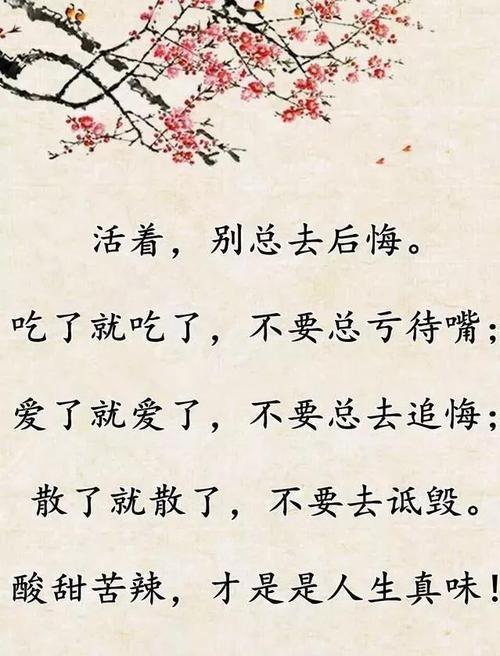 活着，别总去后悔。
吃了就吃了，不要总亏待嘴；
爱了就爱了，不要总去追悔；
散了就散了，不要去诋毁。
酸甜苦辣，才是是人生真味！